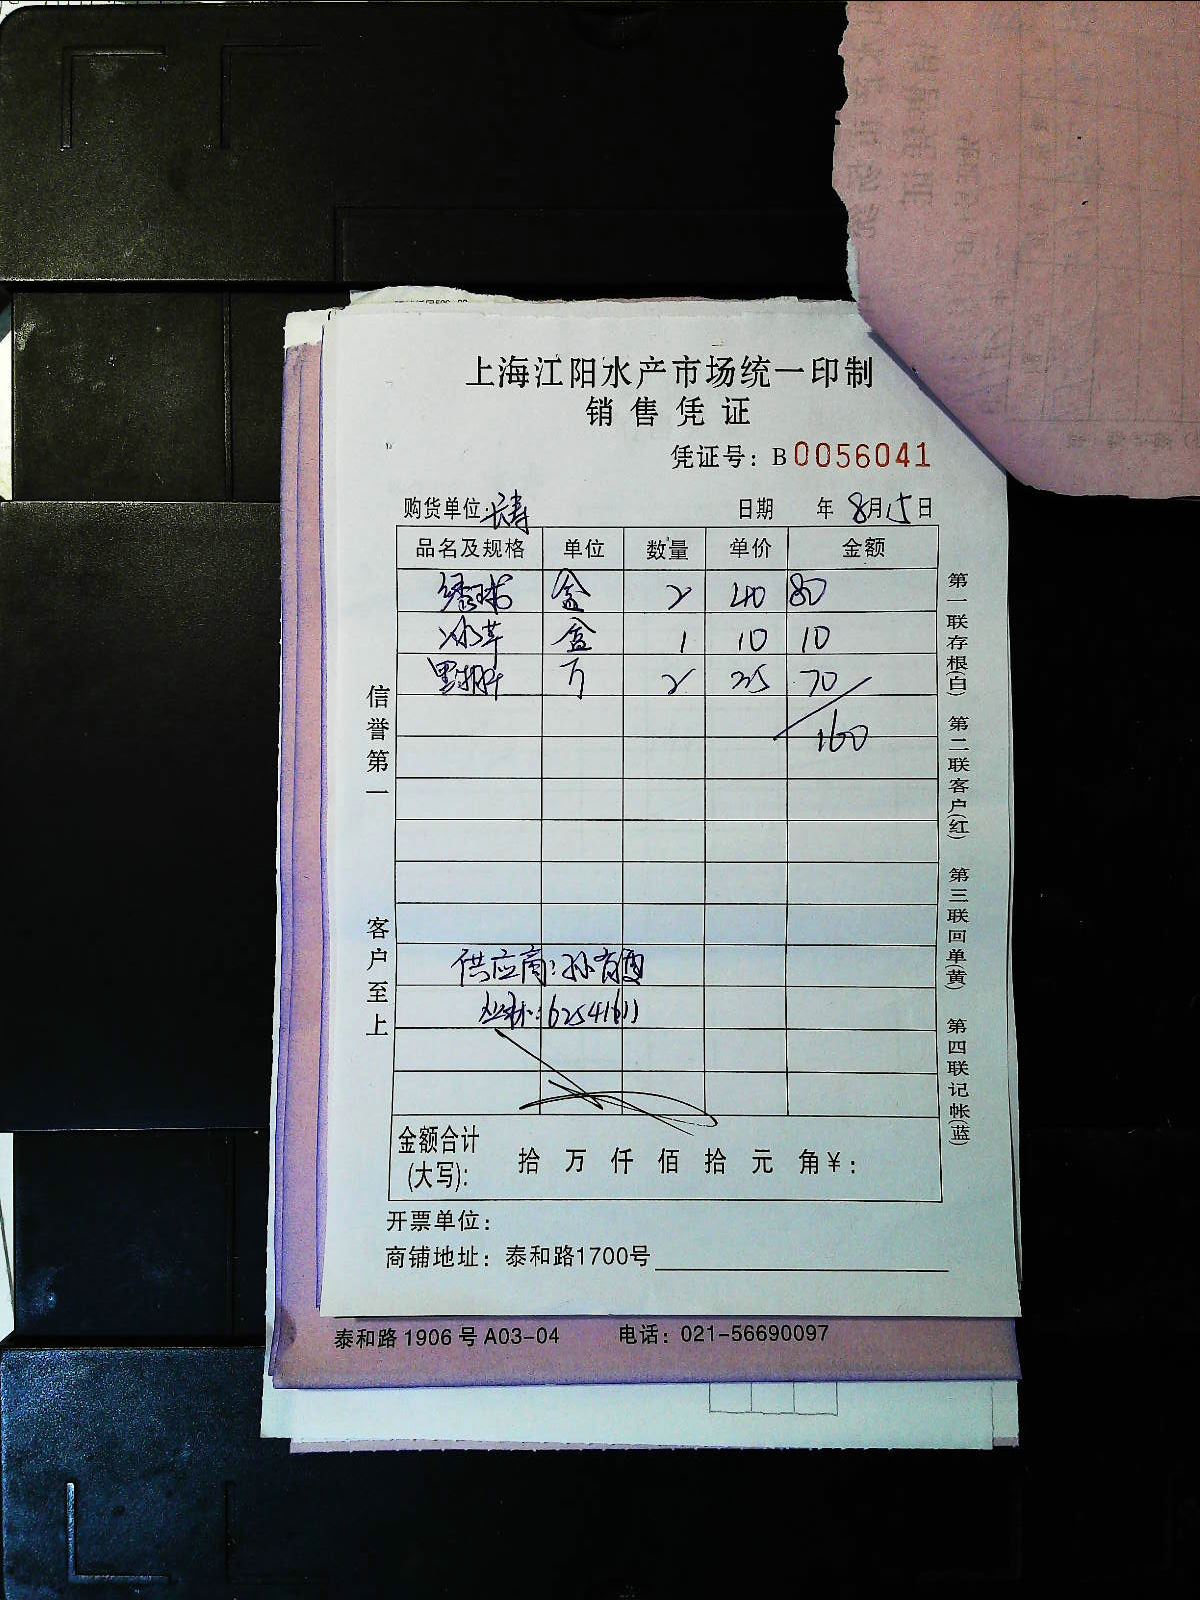 上海江阳水产市场统一印制
销售凭证
凭证号：B0056041
购货单位：长寿 日期 年8月15日
品名及规格 单位 数量 单价 金额
绣球 盒 2 40 80
冰草 盒 1 10 10
2 35 70
160
供应商：孙有
：62541611
金额合计(大写)： 拾 万 仟 佰 拾 元 角¥：
开票单位：
商铺地址：泰和路1700号
信誉第一 客户至上
第一联存根(白) 第二联客户(红) 第三联回单(黄) 第四联记帐(蓝)
泰和路1906号A03-04 电话：021-56690097